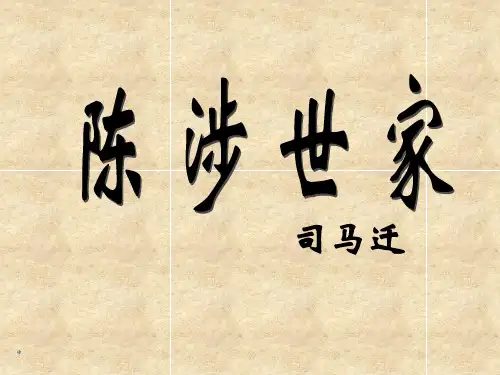 陈涉世家
司马迁